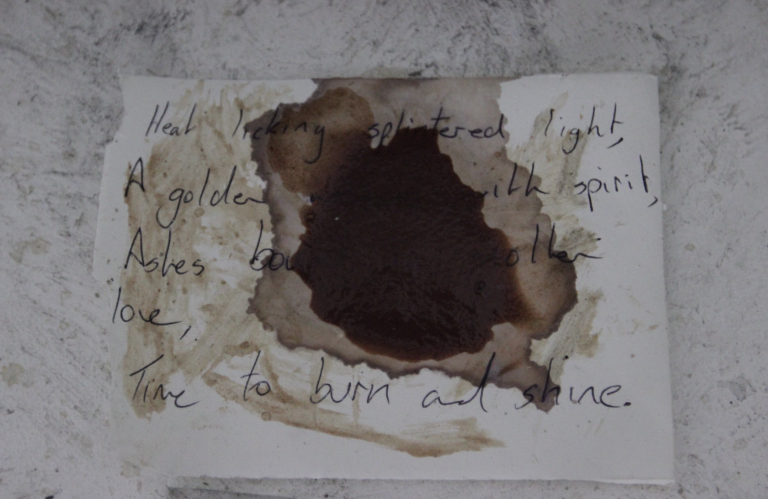 Heat licking splintered light,
A golden with spirit,
Ashes
love,
Time to burn and shine.